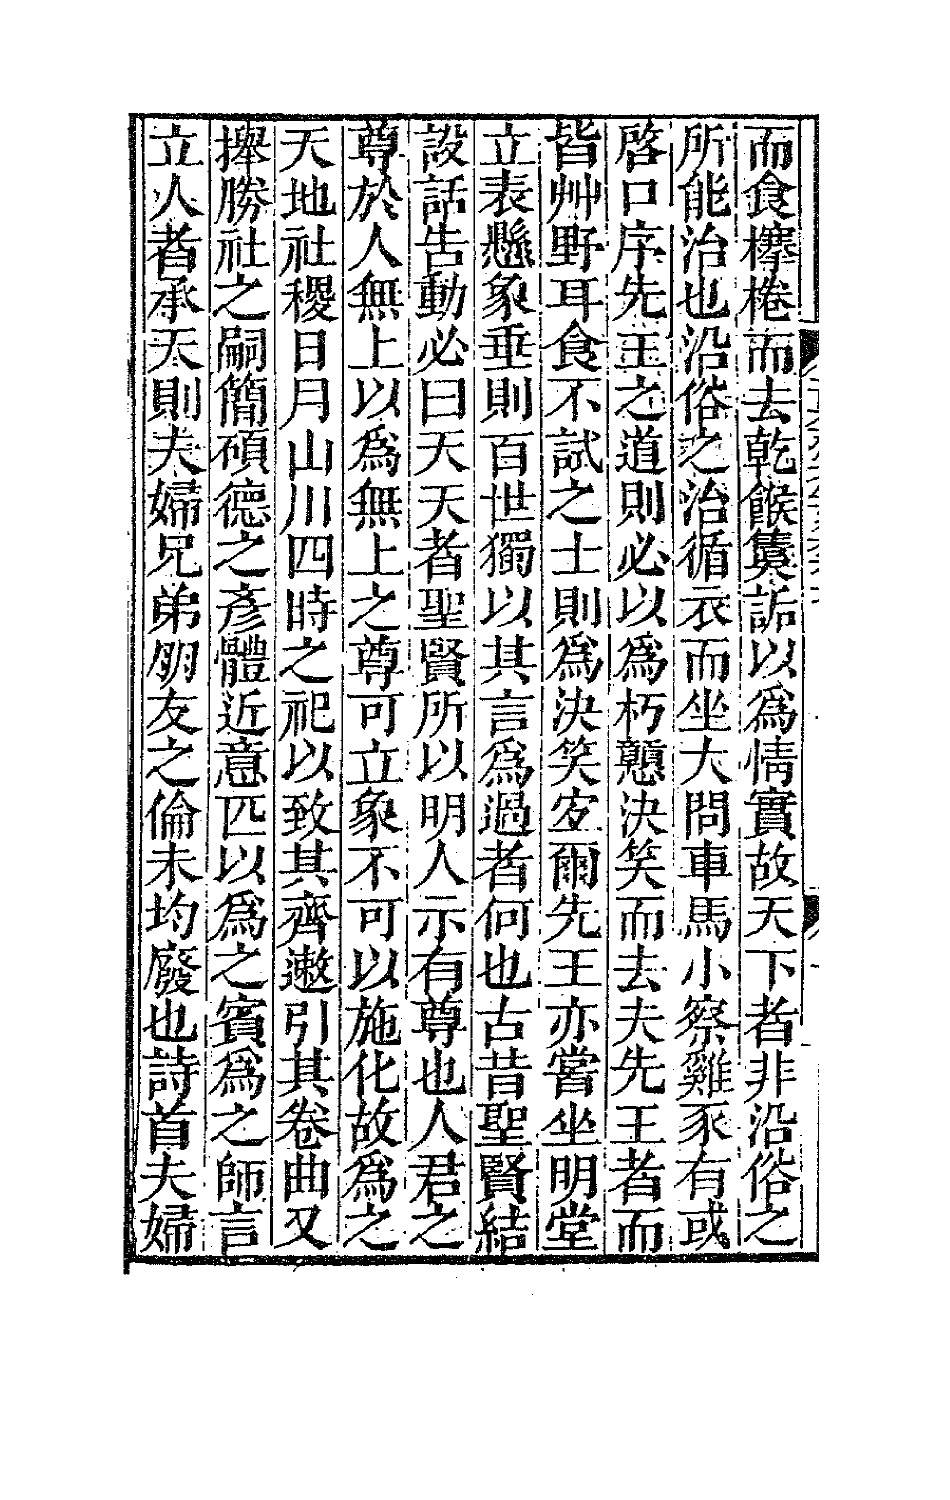 而食檸棬而去乾餱篋詬以為情實故天下者非沿俗之
所能治也沿俗之治循衣而坐大問車馬小察雞豕有或
啓口序先王之道則必以為朽戇決笑而去夫先王者而
皆艸野耳食不試之士則為決笑宐爾先王亦嘗坐明堂
立表懸象垂則百世獨以其言為過者何也古昔聖賢結
設話告動必曰天天者聖賢所以明人示有尊也人君之
尊於人無上以為無上之尊可立象不可以施化故為之
天地社稷日月山川四時之祀以致其齊遬引其卷曲又
擧勝社之嗣簡碩德之彥體近意匹以為之賓為之師言
立人者承天則夫婦兄弟朋友之倫未均廢也詩首夫婦